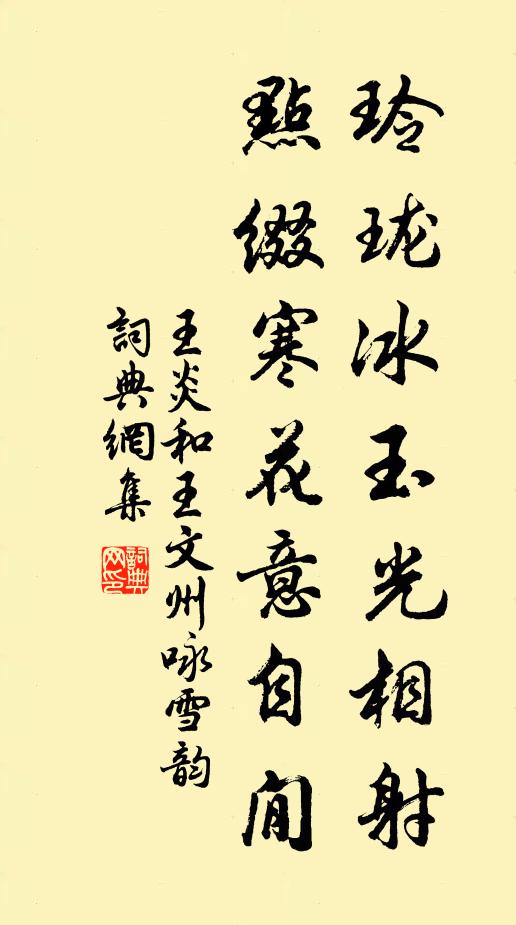 玲珑冰玉光相射
點綴寒花意自閒
王炎和王文州咏雪韵
詞典網集
詞典网印